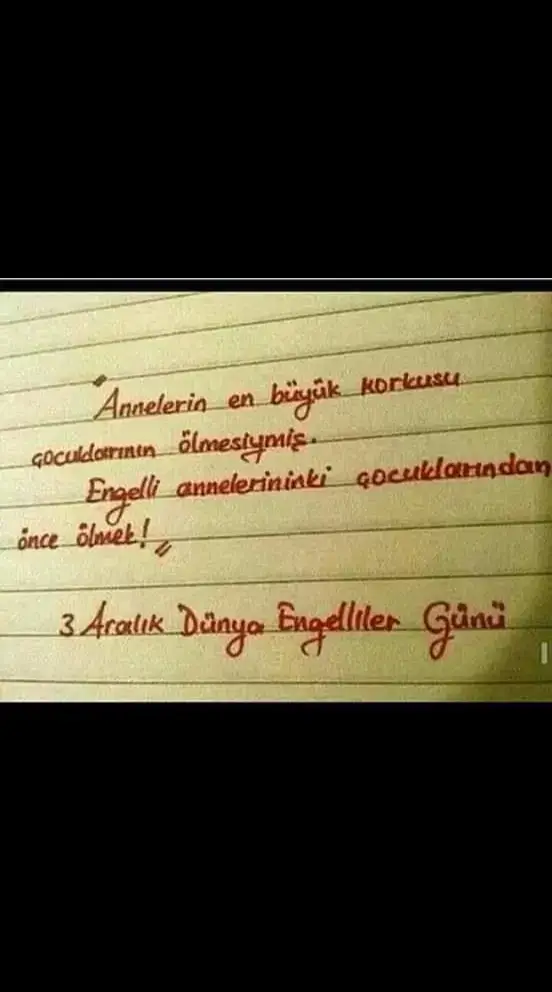 "Annelerin en büyük korkusu
çocuklarının ölmesiymiş.
Engelli annelerininki çocuklarından
önce ölmek!"
3 Aralık Dünya Engelliler Günü